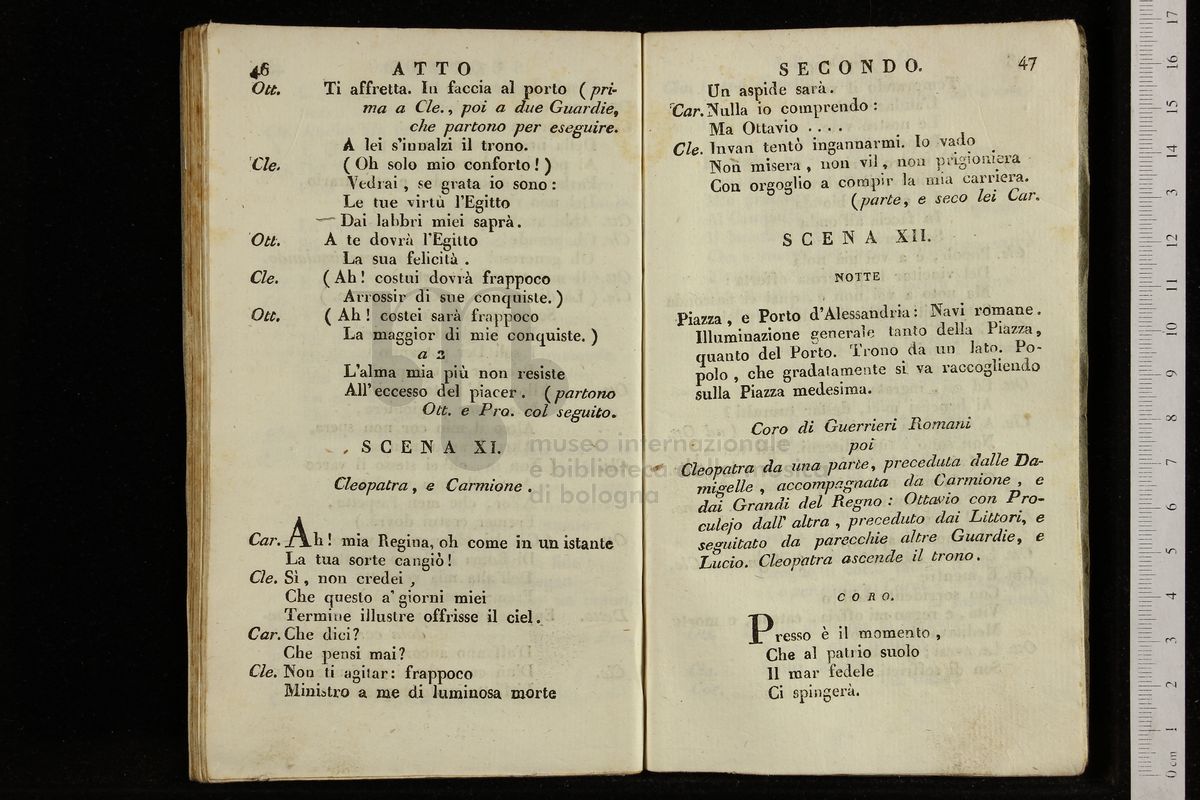 46 ATTO
Ott. Ti affretta. In faccia al porto (pri-
ma a Cle., poi a due Guardie,
che partono per eseguire.
A lei s'innalzi il trono.
Cle. (Oh solo mio conforto!)
Vedrai, se grata io sono:
Le tue virtù l'Egitto
Dai labbri miei saprà.
Ott. A te dovrà l'Egitto
La sua felicità.
Cle. (Ah! costui dovrà frappoco
Arrossir di sue conquiste.)
Ott. (Ah! costei sarà frappoco
La maggior di mie conquiste.)
a 2
L'alma mia più non resiste
All'eccesso del piacer. (partono
Ott. e Pro. col seguito.
SCENA XI.
Cleopatra, e Carmione.
Car. Ah! mia Regina, oh come in un istante
La tua sorte cangiò!
Cle. Sì, non credei,
Che questo a' giorni miei
Termine illustre offrisse il ciel.
Car. Che dici?
Che pensi mai?
Cle. Non ti agitar: frappoco
Ministro a me di luminosa morte
SECONDO. 47
Un aspide sarà.
Car. Nulla io comprendo:
Ma Ottavio ....
Cle. Invan tentò ingannarmi. Io vado
Non misera, non vil, non prigioniera
Con orgoglio a compir la mia carriera.
(parte, e seco lei Car.
SCENA XII.
NOTTE
Piazza, e Porto d'Alessandria: Navi romane.
Illuminazione generale tanto della Piazza,
quanto del Porto. Trono da un lato. Po-
polo, che gradatamente si va raccogliendo
sulla Piazza medesima.
Coro di Guerrieri Romani
poi
Cleopatra da una parte, preceduta dalle Da-
migelle, accompagnata da Carmione, e
dai Grandi del Regno: Ottavio con Pro-
culejo dall' altra, preceduto dai Littori, e
seguitato da parecchie altre Guardie, e
Lucio. Cleopatra ascende il trono.
CORO.
Presso è il momento,
Che al patrio suolo
Il mar fedele
Ci spingerà.
museo internazionale
e biblioteca della musica
di bologna
0 cm 1 2 3 4 5 6 7 8 9 10 11 12 13 14 15 16 17